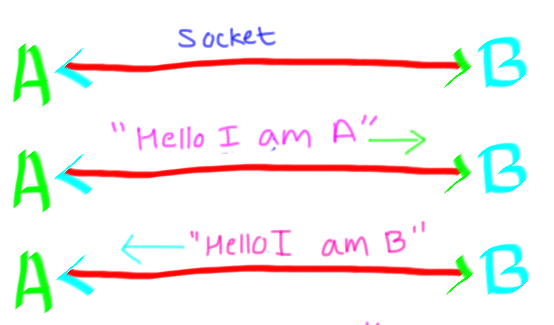 Socket
A B
"Hello I am A"
A B
"Hello I am B"
A B